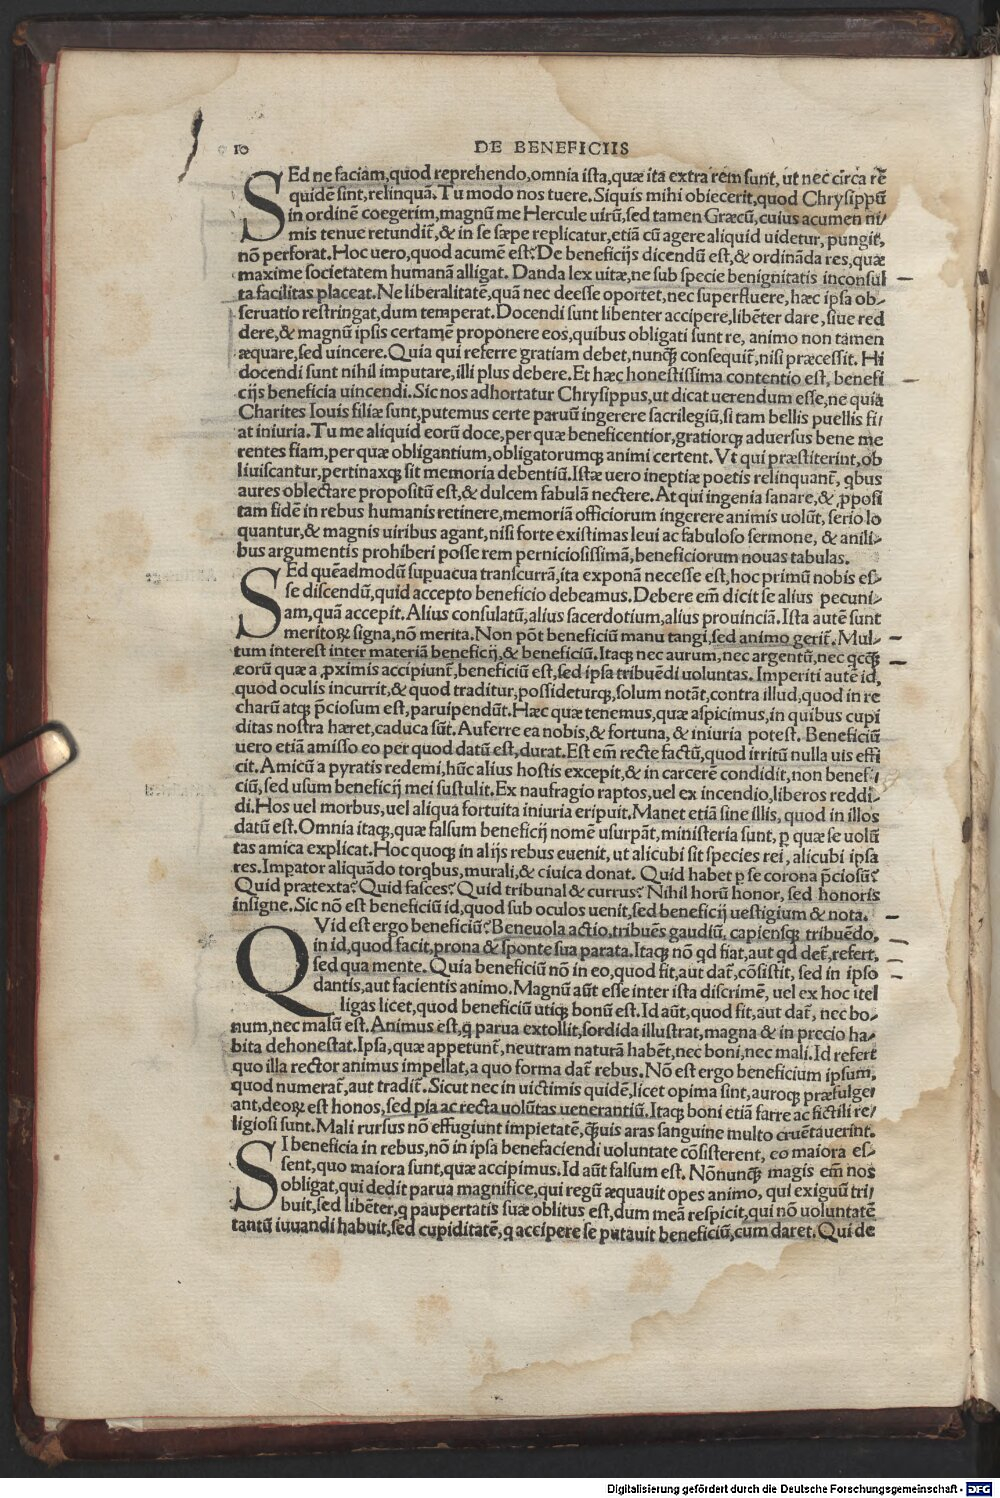 10 DE BENEFICIIS
SEd ne faciam,quod reprehendo,omnia ista,quæ ita extra rem sunt, ut nec circa rē
quidē sint,relinquā.Tu modo nos tuere. Siquis mihi obiecerit,quod Chrysippū
in ordinē coegerim,magnū me Hercule uirū,sed tamen Græcū,cuius acumen ni/
mis tenue retundit̄,& in se sæpe replicatur,etiā cū agere aliquid uidetur, pungit,
nō perforat. Hoc uero,quod acumē est? De beneficijs dicendū est,& ordināda res,quæ
maxime societatem humanā alligat. Danda lex uitæ,ne sub specie benignitatis inconsul
ta facilitas placeat.Ne liberalitatē,quā nec deesse oportet,nec superfluere, hæc ipsa ob-
seruatio restringat,dum temperat.Docendi sunt libenter accipere,libēter dare,siue red
dere,& magnū ipsis certamē proponere eos,quibus obligati sunt re, animo non tamen
æquare,sed uincere.Quia qui referre gratiam debet,nunꝗ̄ consequit̄,nisi præcessit. Hi
docendi sunt nihil imputare,illi plus debere.Et hæc honestissima contentio est, benefi
cijs beneficia uincendi.Sic nos adhortatur Chrysippus,ut dicat uerendum esse,ne quia
Charites Iouis filiæ sunt,putemus certe paruū ingerere sacrilegiū,si tam bellis puellis fi/
at iniuria.Tu me aliquid eorū doce,per quæ beneficentior,gratiorqꝫ aduersus bene me
rentes fiam,per quæ obligantium,obligatorumqꝫ animi certent. Vt qui præstiterint,ob
liuiscantur,pertinaxqꝫ sit memoria debentiū.Istæ uero ineptiæ poetis relinquant̄, qbus
aures oblectare propositū est,& dulcem fabulā nectere.At qui ingenia sanare,& ꝓposi
tam fidē in rebus humanis retinere,memoriā officiorum ingerere animis uolūt, serio lo
quantur,& magnis uiribus agant,nisi forte existimas leui ac fabuloso sermone, & anili-
bus argumentis prohiberi posse rem perniciosissimā,beneficiorum nouas tabulas.
SEd quēadmodū supuacua transcurrā,ita exponā necesse est,hoc primū nobis es-
se discendū,quid accepto beneficio debeamus.Debere em̄ dicit se alius pecuni-
am,quā accepit.Alius consulatū,alius sacerdotium,alius prouinciā.Ista autē sunt
meritoꝝ signa,nō merita.Non pōt beneficiū manu tangi,sed animo gerit̄.Mul-
tum interest inter materiā beneficij,& beneficiū.Itaqꝫ nec aurum,nec argentū,nec qcꝗ̄
eorū quæ a ꝓximis accipiunt̄,beneficiū est,sed ipsa tribuēdi uoluntas. Imperiti autē id,
quod oculis incurrit,& quod traditur,possideturqꝫ,solum notāt,contra illud,quod in re
charū atqꝫ p̄ciosum est,paruipendūt.Hæc quæ tenemus,quæ aspicimus,in quibus cupi
ditas nostra hæret,caduca sūt.Auferre ea nobis,& fortuna, & iniuria potest. Beneficiū
uero etiā amisso eo per quod datū est,durat.Est em̄ recte factū,quod irritū nulla uis effi
cit.Amicū a pyratis redemi,hūc alius hostis excepit,& in carcerē condidit,non benefi-
ciū,sed usum beneficij mei sustulit.Ex naufragio raptos,uel ex incendio,liberos reddi-
di.Hos uel morbus,uel aliqua fortuita iniuria eripuit.Manet etiā sine illis, quod in illos
datū est.Omnia itaqꝫ,quæ falsum beneficij nomē usurpāt,ministeria sunt, ꝑ quæ se uolū
tas amica explicat.Hoc quoqꝫ in alijs rebus euenit, ut alicubi sit species rei, alicubi ipsa
res.Impator aliquādo torqbus,murali,& ciuica donat. Quid habet ꝑ se corona p̄ciosū?
Quid prætexta? Quid fasces? Quid tribunal & currus? Nihil horū honor, sed honoris
insigne.Sic nō est beneficiū id,quod sub oculos uenit,sed beneficij uestigium & nota.
QVid est ergo beneficiū? Beneuola actio,tribuēs gaudiū, capiensqꝫ tribuēdo,
in id,quod facit,prona & sponte sua parata.Itaqꝫ nō qd fiat,aut qd det̄,refert,
sed qua mente. Quia beneficiū nō in eo,quod fit,aut dat̄,cōsistit, sed in ipso
dantis,aut facientis animo.Magnū aūt esse inter ista discrimē, uel ex hoc itel
ligas licet,quod beneficiū utiqꝫ bonū est.Id aūt,quod fit,aut dat̄, nec bo-
num,nec malū est.Animus est,q parua extollit,sordida illustrat,magna & in precio ha-
bita dehonestat.Ipsa,quæ appetunt̄,neutram naturā habēt,nec boni,nec mali.Id refert
quo illa rector animus impellat,a quo forma dat̄ rebus.Nō est ergo beneficium ipsum,
quod numerat̄,aut tradit̄.Sicut nec in uictimis quidē,licet opima sint,auroqꝫ præfulge/
ant,deoꝝ est honos,sed pia ac recta uolūtas uenerantiū.Itaqꝫ boni etiā farre ac fictili re/
ligiosi sunt.Mali rursus nō effugiunt impietatē,ꝗ̄uis aras sanguine multo cruētauerint.
SI beneficia in rebus,nō in ipsa benefaciendi uoluntate cōsisterent, eo maiora es-
sent,quo maiora sunt,quæ accipimus.Id aūt falsum est. Nōnunꝗ̄ magis em̄ nos
obligat,qui dedit parua magnifice,qui regū æquauit opes animo, qui exiguū tri/
buit,sed libēter,q paupertatis suæ oblitus est,dum meā respicit,qui nō uoluntatē
tantū iuuandi habuit,sed cupiditatē,q accipere se putauit beneficiū,cum daret. Qui de
Digitalisierung gefördert durch die Deutsche Forschungsgemeinschaft - DFG